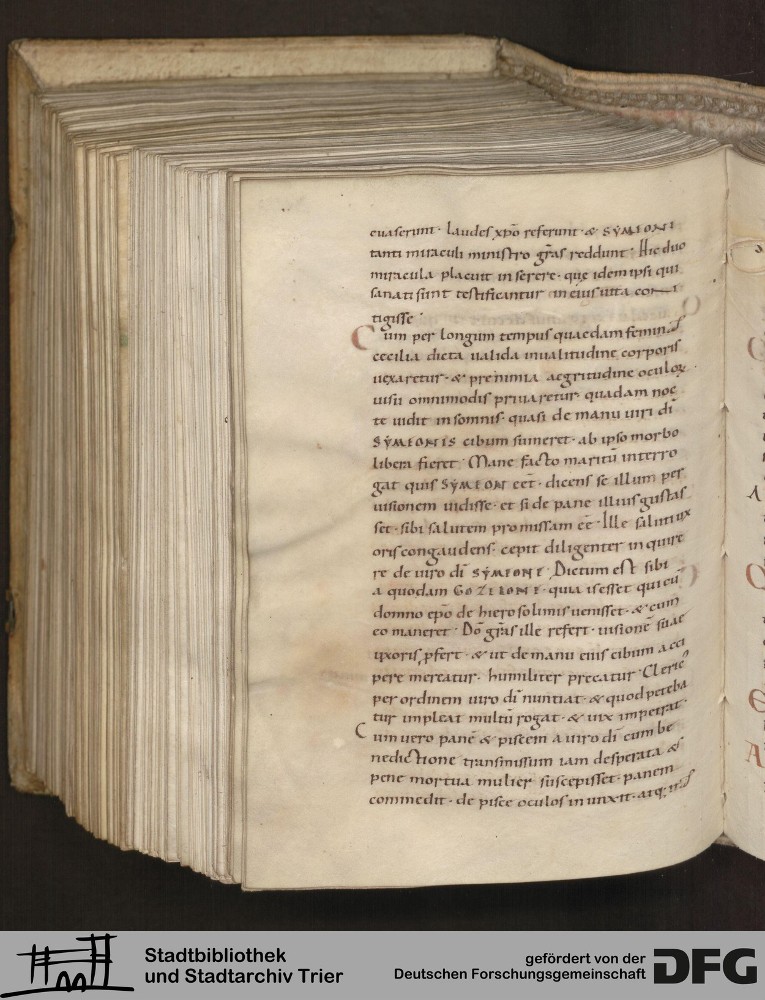 euaserunt· laudes xp̄o referunt· & SYMEONI
tanti miraculi ministro grās reddunt· Hic duo
miracula placuit inserere· quę idem ipsi qui
sanati sunt testificantur in eius uita con
tigisse·
Cum per longum tempus quaedam femina
cecilia dicta ualida inualitudine corporis
uexaretur· & prę nimia aegritudine oculoꝝ
uisu omnimodis priuaretur· quadam noc
te uidit in somnis· quasi de manu uiri dī
SYMEONIS cibum sumeret· ab ipso morbo
libera fieret· Mane facto maritū interro
gat quis SYMEON eēt· dicens se illum per
uisionem uidisse· et si de pane illius gustas
set· sibi salutem promissam eē· Ille saluti ux
oris congaudens· cepit diligenter inquire
re de uiro dī SYMEONE· Dictum est sibi
a quodam GOZELONE· quia is esset qui cū
domno ep̄o de hierosolimis uenisset· & cum
eo maneret· Dō grās ille refert· uisionē suae
uxoris ꝓfert· & ut de manu eius cibum acci
pere mereatur· humiliter precatur· Cleric
per ordinem uiro dī nuntiat· & quod peteba
tur impleat multū rogat· & uix impetrat·
Cum uero panē & piscem a uiro dī cum be
nedictione transmissum iam desperata &
pene mortua mulier suscepisset· panem
commedit· de pisce oculos inunxit· atq;
Stadtbibliothek
und Stadtarchiv Trier
gefördert von der
Deutschen Forschungsgemeinschaft
DFG